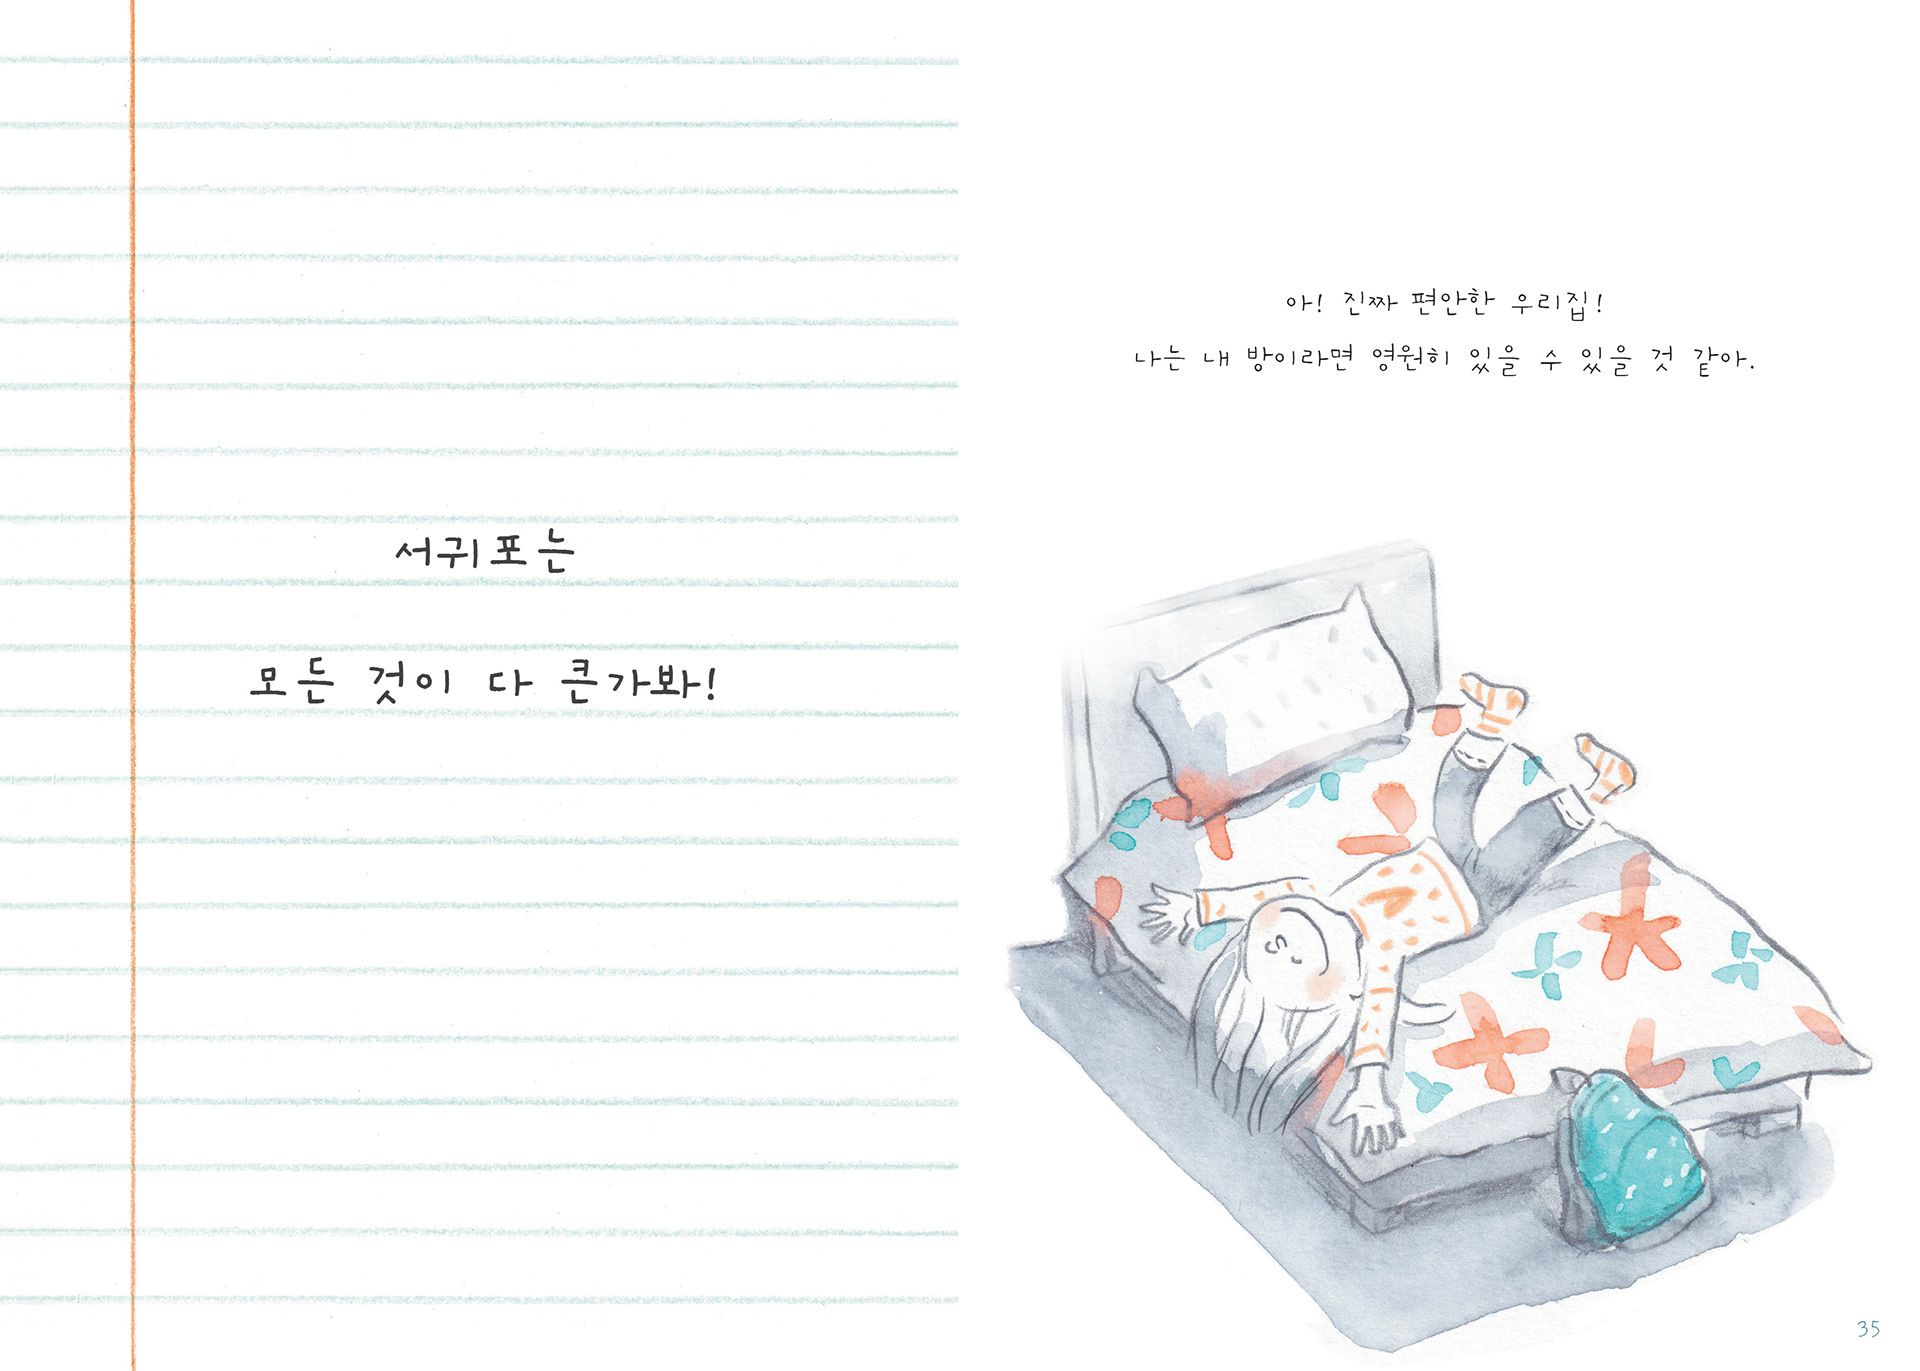 서귀포는
모든 것이 다 큰가봐!
아! 진짜 편안한 우리집!
나는 내 방이라면 영원히 있을 수 있을 것 같아.
35